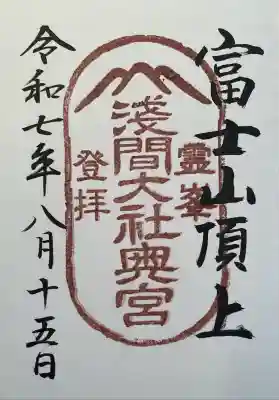 富士山頂上
靈峯
淺間大社奥宮
登拝
令和七年八月十五日